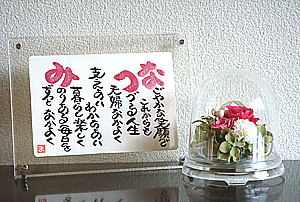 なごやかな笑顔で
これからも
つづる人生
夫婦なかよく
支えあい
わかちあい
みのりある毎日を
ずっとなかよく